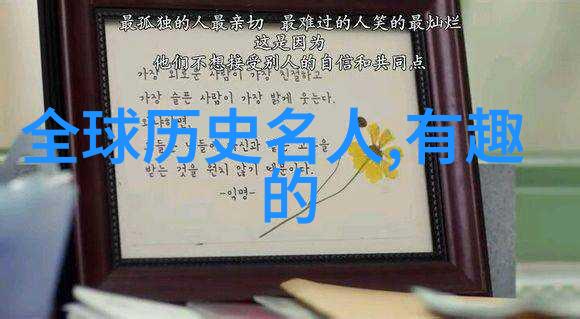 最孤独的人最亲切 最难过的人笑的最灿烂
这是因为
他们不想接受别人的自信和共同点
가장 외로운 사람이 가장 친절하고
가장 슬픈 사람이 가장 밝게 웃는다.
왜냐하면,
받는 것을 원치 않기 때문이다
-익명-
全球历史名人,有趣
的